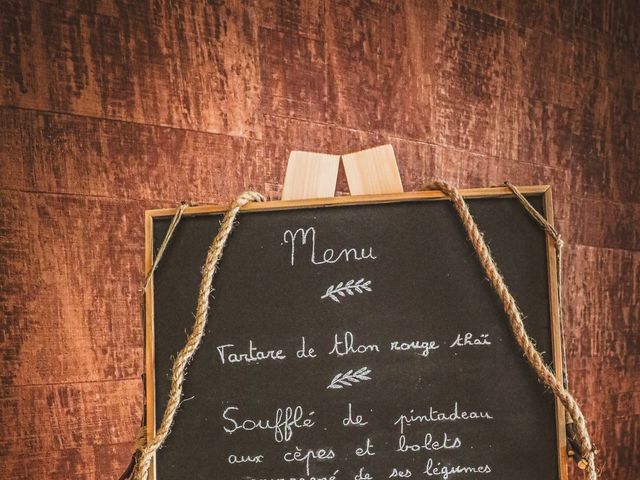 Menu
Tartare de thon rouge thaï
Soufflé de pintadeau
aux cèpes et bolets
de ses légumes